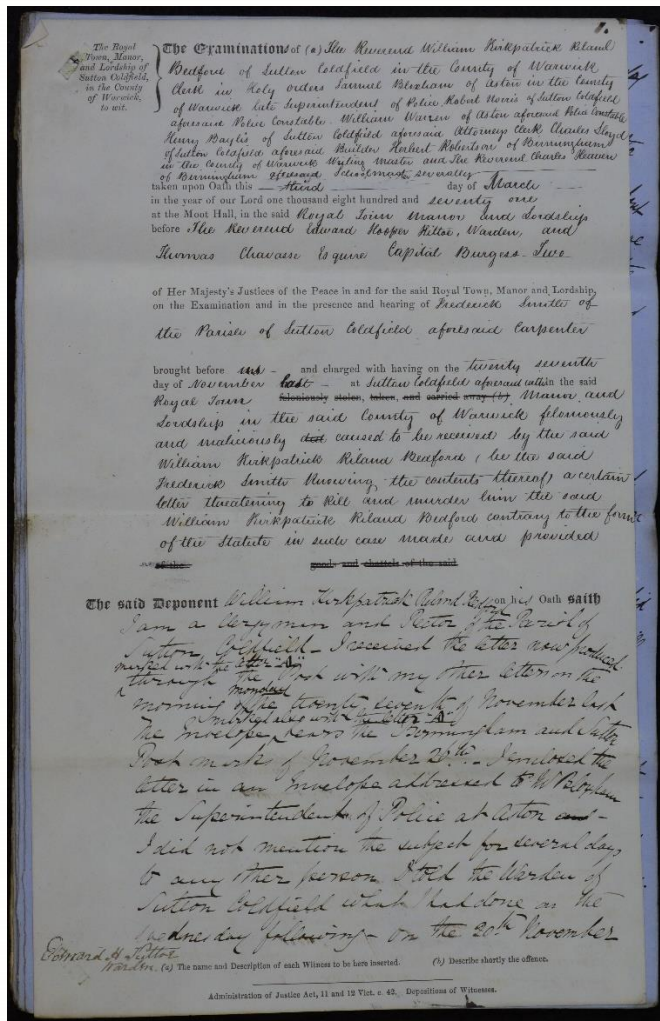 1.
The Royal
Town, Manor,
and Lordship of
Sutton Coldfield,
in the County
of Warwick,
to wit.
The Examination of (a) The Reverend William Kirkpatrick Riland
Bedford of Sutton Coldfield in the County of Warwick
Clerk in Holy orders Samuel Bloxham of Aston in the County
of Warwick late Superintendent of Police Robert Norris of Sutton Coldfield
aforesaid Police Constable. William Warren of Aston aforesaid Police Constable
Henry Baylis of Sutton Coldfield aforesaid Attorneys Clerk Charles Lloyd
of Sutton Coldfield aforesaid Builder Herbert Robertson of Birmingham
in the County of Warwick Writing Master and The Reverend Charles Heaven
of Birmingham aforesaid Schoolmaster severally
taken upon Oath this third day of March
in the year of our Lord one thousand eight hundred and seventy one
at the Moot Hall, in the said Royal Town Manor and Lordship
before The Reverend Edward Hooper Kittoe, Warden, and
Thomas Chavasse Esquire Capital Burgess - Two
of Her Majesty's Justices of the Peace in and for the said Royal Town, Manor and Lordship,
on the Examination and in the presence and hearing of Frederick Smith of
the Parish of Sutton Coldfield aforesaid Carpenter
brought before us - and charged with having on the twenty seventh
day of November last - at Sutton Coldfield aforesaid within the said
Royal Town feloniously stolen, taken, and carried away (b) Manor and
Lordship in the said County of Warwick feloniously
and maliciously did caused to be received by the said
William Kirkpatrick Riland Bedford, (he the said
Frederick Smith Knowing the contents thereof) a certain
letter threatening to kill and murder him the said
William Kirkpatrick Riland Bedford contrary to the form
of the Statute in such case made and provided
of the goods and chattels of the said
The said Deponent William Kirkpatrick Riland Bedford on his Oath saith
I am a clergyman and Rector of the Parish of
Sutton Coldfield - I received the letter now produced
marked with the letter "A"
through the Post with my other letters on the
monday
morning of the twenty seventh of November last
marked also with the letter A
The Envelope bears the Birmingham and Sutton
Post marks of November 26th - I enclosed the
letter in an Envelope addressed to Mr Bloxham
the Superintendent of Police at Aston and -
I did not mention the subject for several days
to any other person I told the Warden of
Sutton Coldfield what I had done on the
Wednesday following - On the 20th November
Edward H Kittoe
Warden.
(a) The name and Description of each Witness to be here inserted. (b) Describe shortly the offence.
Administration of Justice Act, 11 and 12 Vict. c. 42. Depositions of Witnesses.